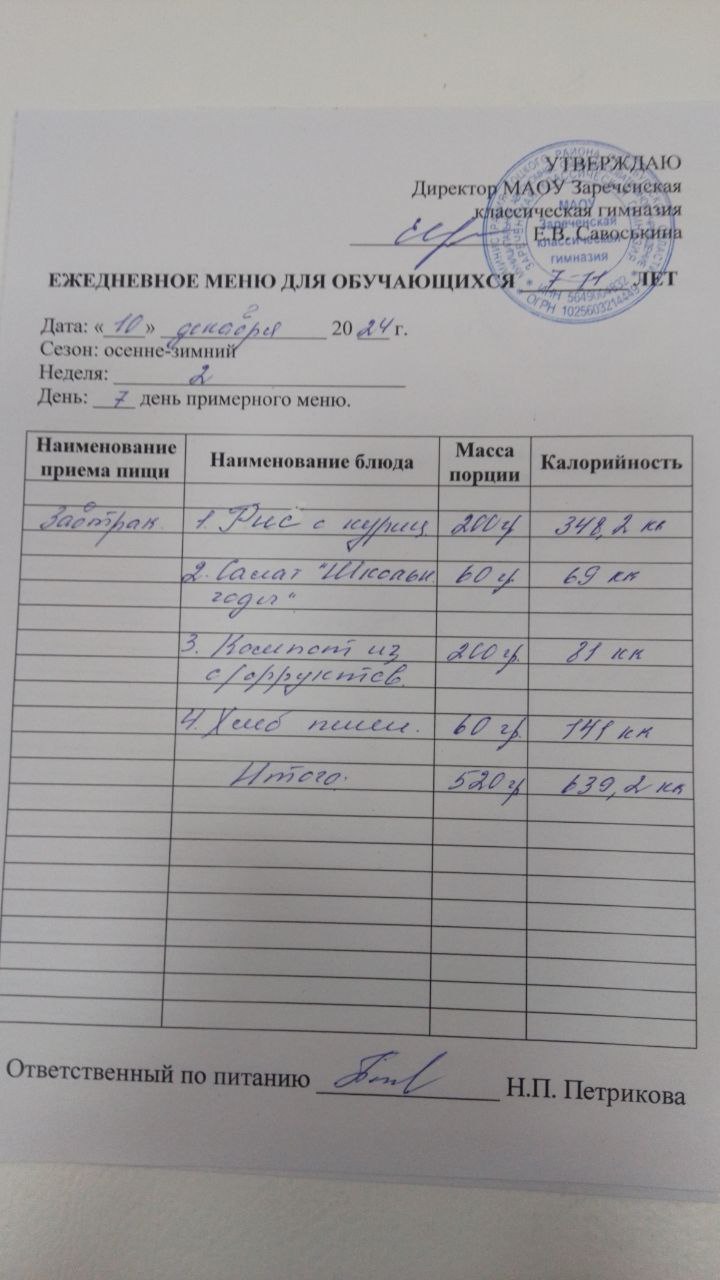 УТВЕРЖДАЮ
Директор МАОУ Зареченская
классическая гимназия
Е.В. Савоськина
МАОУ
Зареченская
классическая
гимназия
* ИНН 5649004832 *
* ОГРН 1025603214449 *
ЕЖЕДНЕВНОЕ МЕНЮ ДЛЯ ОБУЧАЮЩИХСЯ 7-11 ЛЕТ
Дата: «10» декабря 2024 г.
Сезон: осенне-зимний
Неделя: 2
День: 7 день примерного меню.
Наименование приема пищи Наименование блюда Масса порции Калорийность
Завтрак 1. Рис с куриц. 200 гр 348,2 кк
2. Салат "Школьн. 60 гр 69 кк
годы"
3. Компот из 200 гр. 81 кк
с/фруктов.
4. Хлеб пшен. 60 гр. 141 кк
Итого: 520 гр 639,2 кк
Ответственный по питанию Н.П. Петрикова